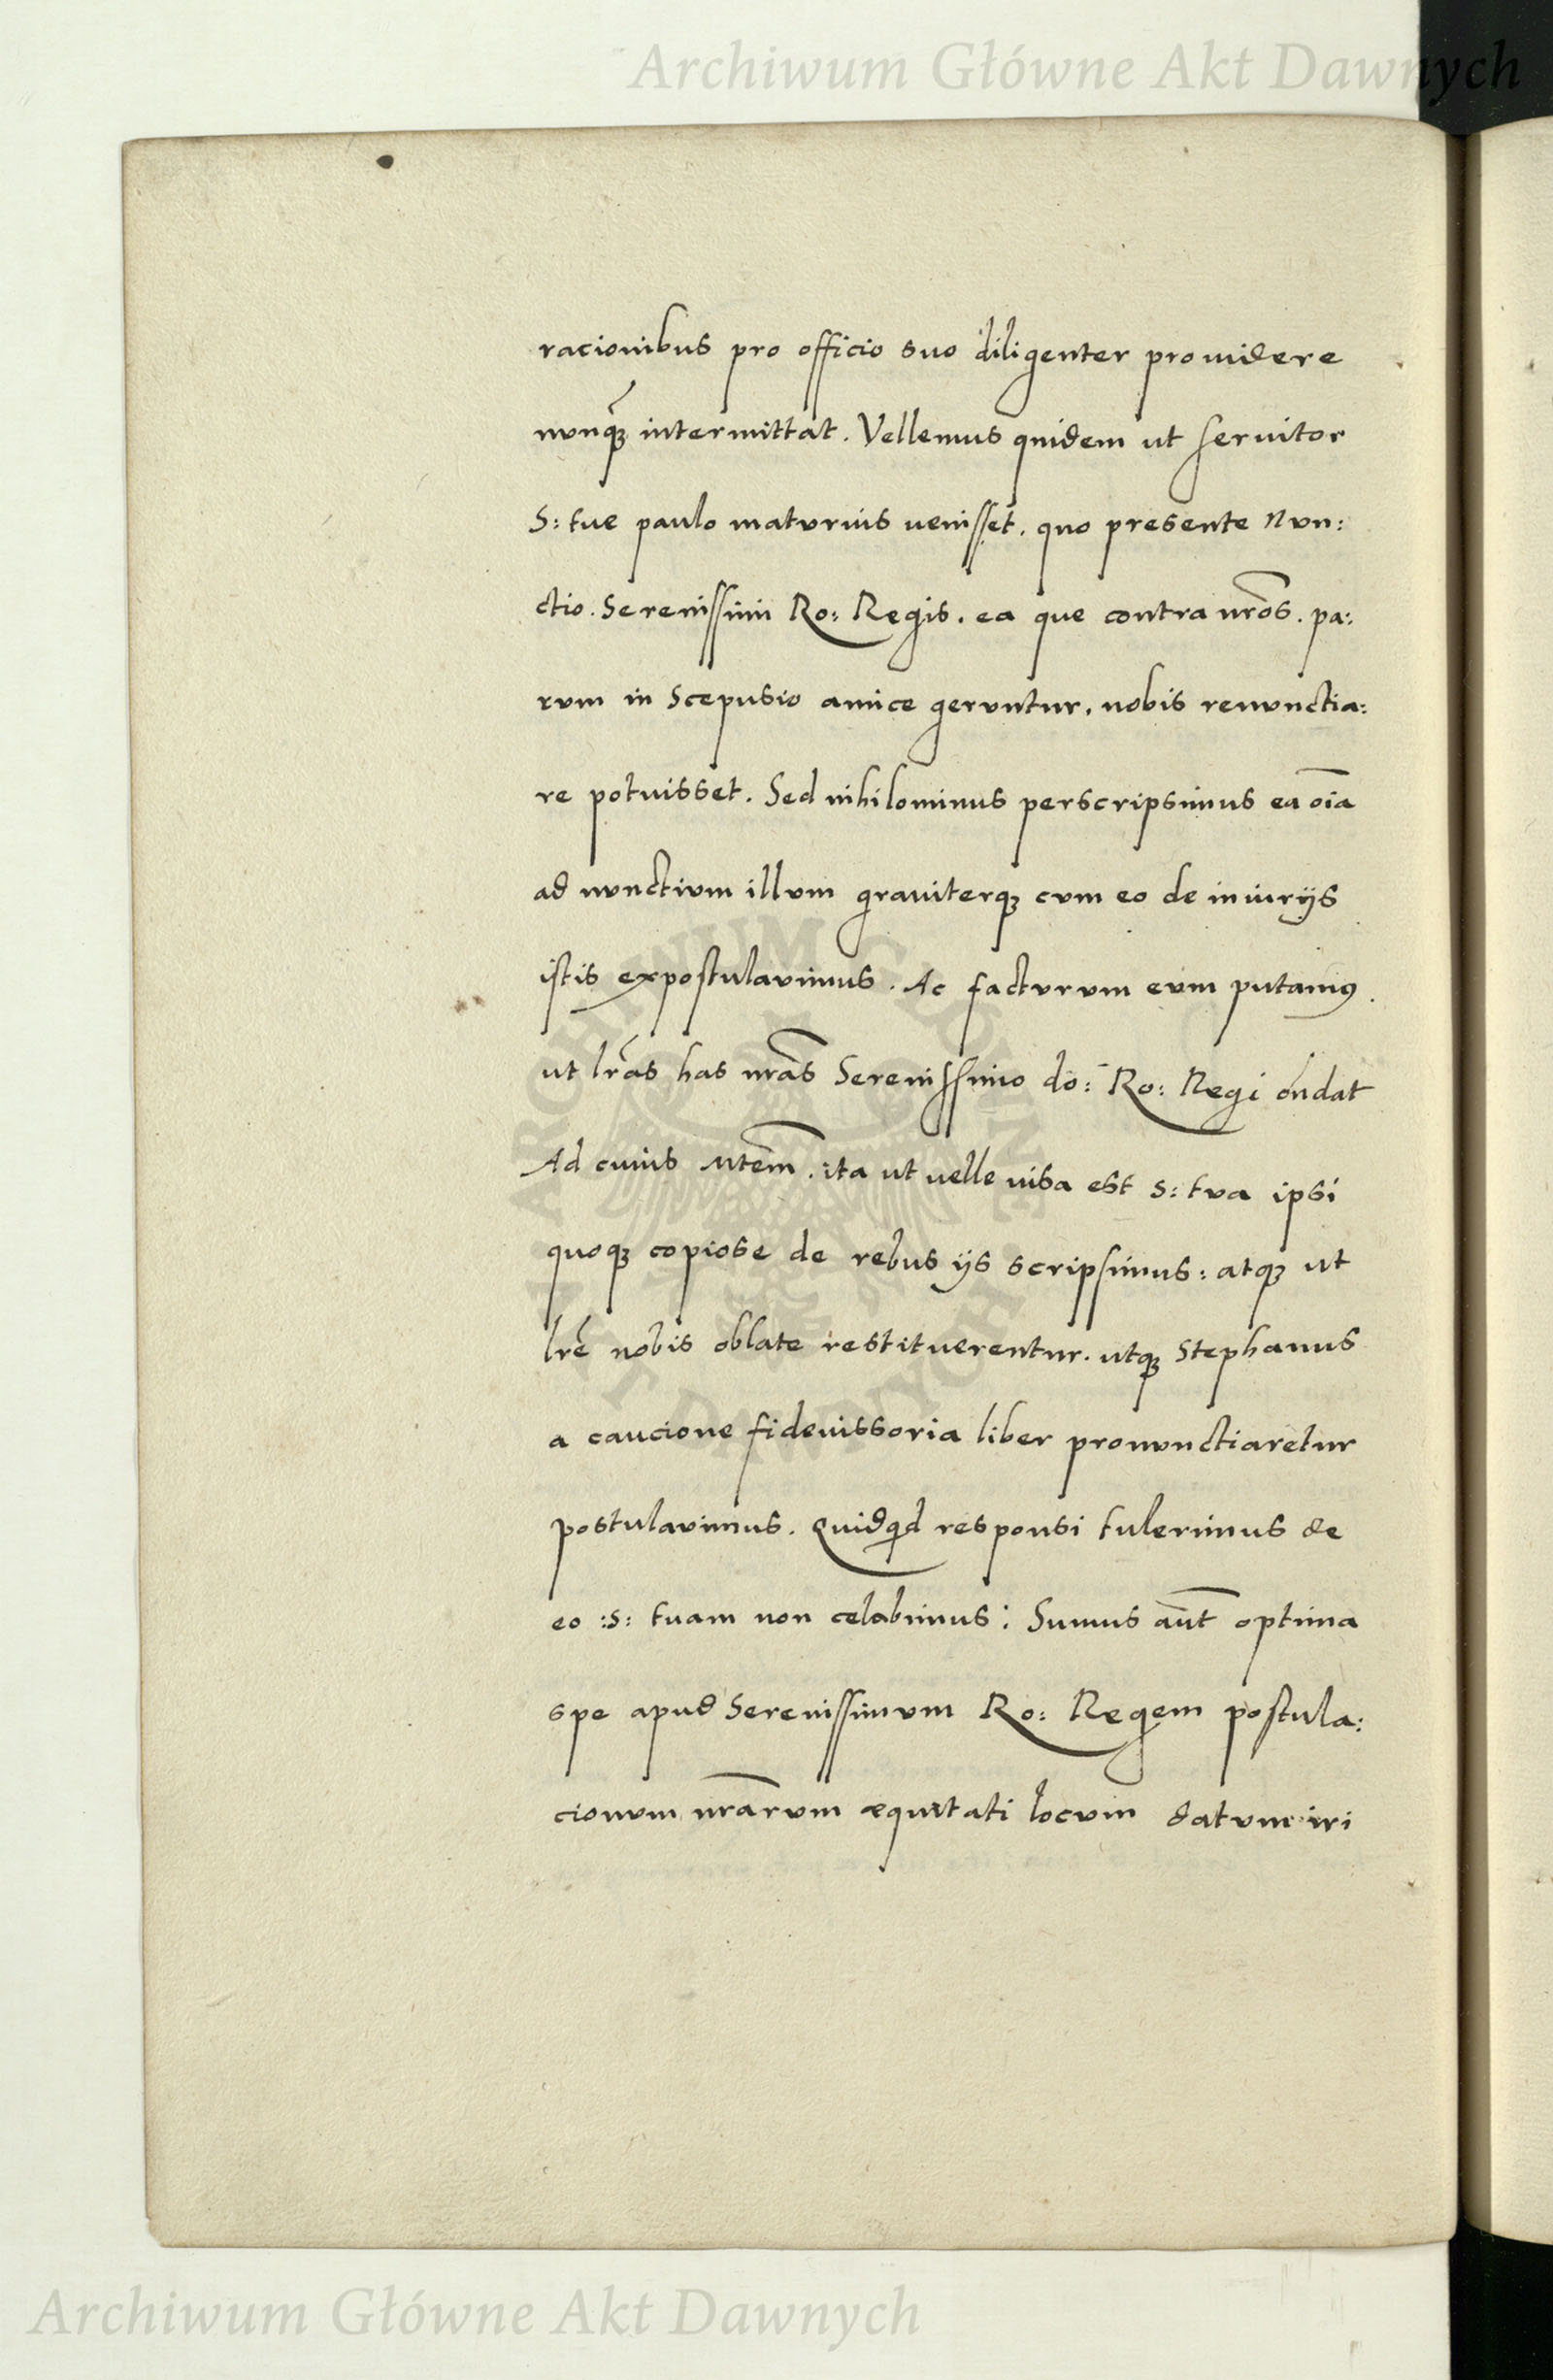 Archiwum Główne Akt Dawnych
racionibus pro officio suo diligenter prouidere
nunq̃ intermittat. Vellemus quidem ut seruitor
S: tue paulo maturius uenisset. quo presente Nun:
ctio. Serenissimi Ro: Regis. ea que contra nr̃os. pa:
rum in Scepusio amice geruntur. nobis renunctia:
re potuisset. Sed nihilominus perscripsimus ea oĩa
ad nunctium illum grauiterq; cum eo de iniurijs
istis expostulauimus. Ac facturum eum putamꝰ.
ut lr̃as has nr̃as Serenissimo do: Ro: Regi oñdat
Ad cuius Mtem̃. ita ut uelle uisa est S: tua ipsi
quoq; copiose de rebus ijs scripsimus: atq; ut
lr̃e nobis oblate restituerentur. utq; Stephanus
a caucione fideiussoria liber pronunctiaretur
postulauimus. Quidqid responsi tulerimus de
eo :S: tuam non celabimus: Sumus aũt optima
spe apud Serenissimum Ro: Regem postula:
cionum nr̃arum æquitati locum datum iri
ARCHIWUM GŁÓWNE AKT DAWNYCH
Archiwum Główne Akt Dawnych